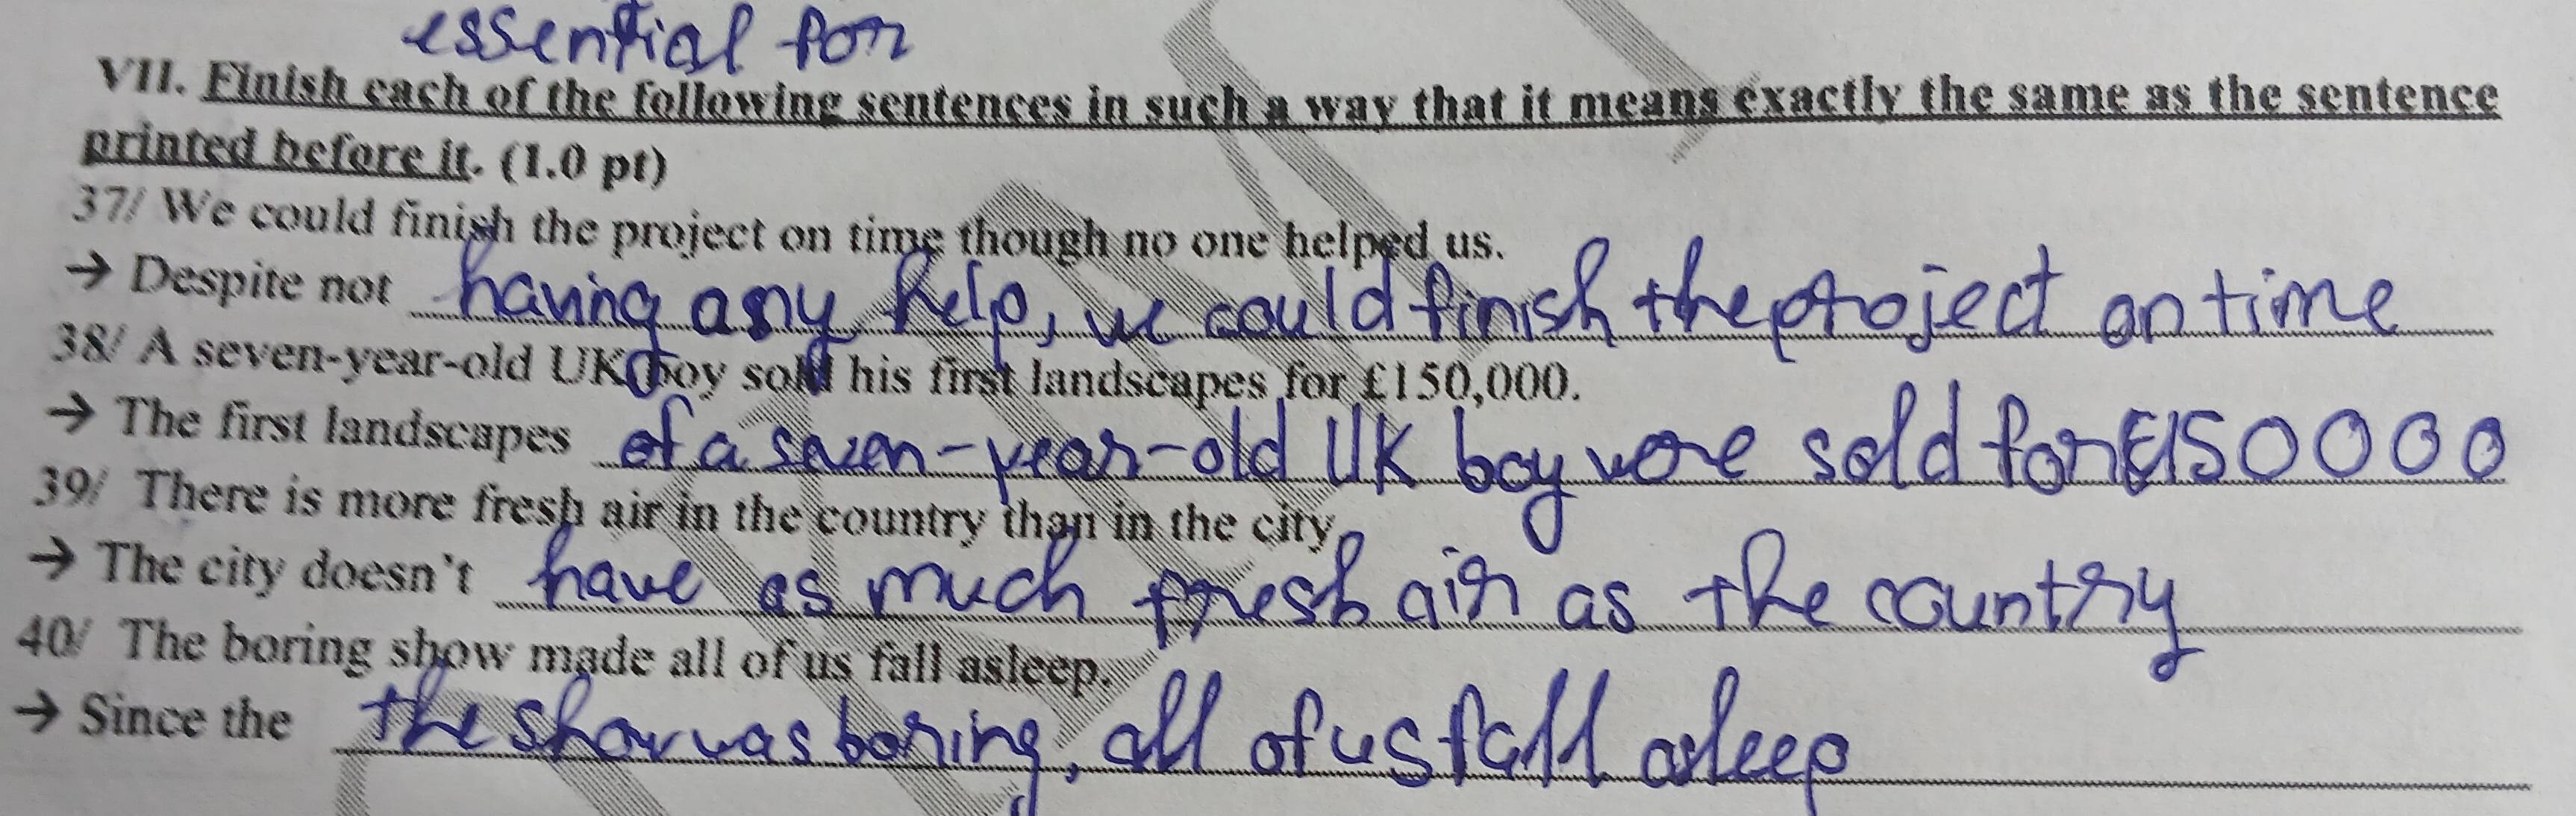 essential for
VII. Finish each of the following sentences in such a way that it means exactly the same as the sentence
printed before it. (1.0 pt)
37/ We could finish the project on time though no one helped us.
→ Despite not having any help, we could finish the project on time
38/ A seven-year-old UK boy sold his first landscapes for £150,000.
→ The first landscapes of a seven-year-old UK boy were sold for £150000
39/ There is more fresh air in the country than in the city
→ The city doesn't have as much fresh air as the country
40/ The boring show made all of us fall asleep.
→ Since the the show was boring, all of us fall asleep